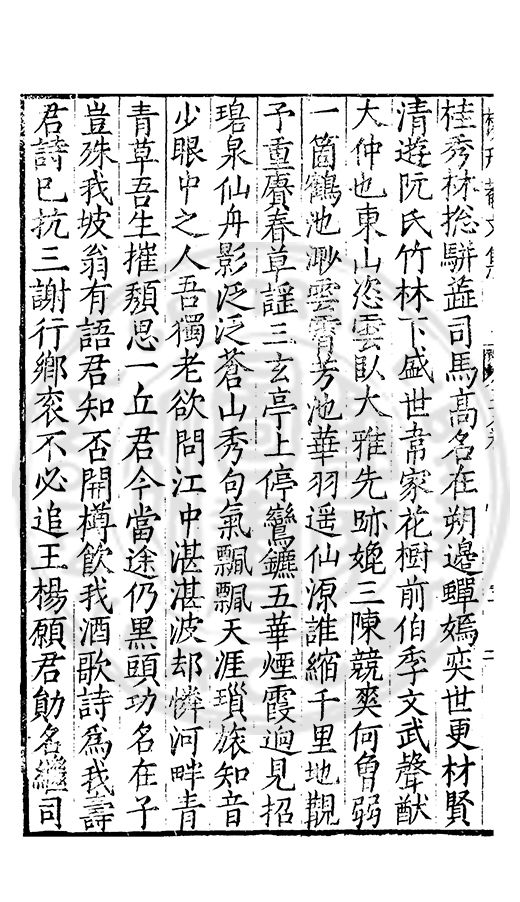 桂秀林捴駢葢司馬髙名在朔邊蟬嫣奕世更材賢
清遊阮氏竹林下盛世韋家花樹前伯季文武聲猷
大仲也東山恣雲臥大雅先跡媲三陳競爽何曾弱
一箇鶴池渺雲霄芳池華羽遥仙源誰縮千里地覯
予重賡春草謡三玄亭上停鸞鑣五華煙霞逈見招
碧泉仙舟影泛泛蒼山秀句氣飄飄天涯瑣旅知音
少眼中之人吾獨老欲問江中湛湛波却憐河畔青
青草吾生摧頽思一丘君今當途仍黒頭功名在子
豈殊我坡翁有語君知否開樽飲我酒歌詩爲我壽
君詩已抗三謝行鄉衮不必追王楊願君勛名繼司